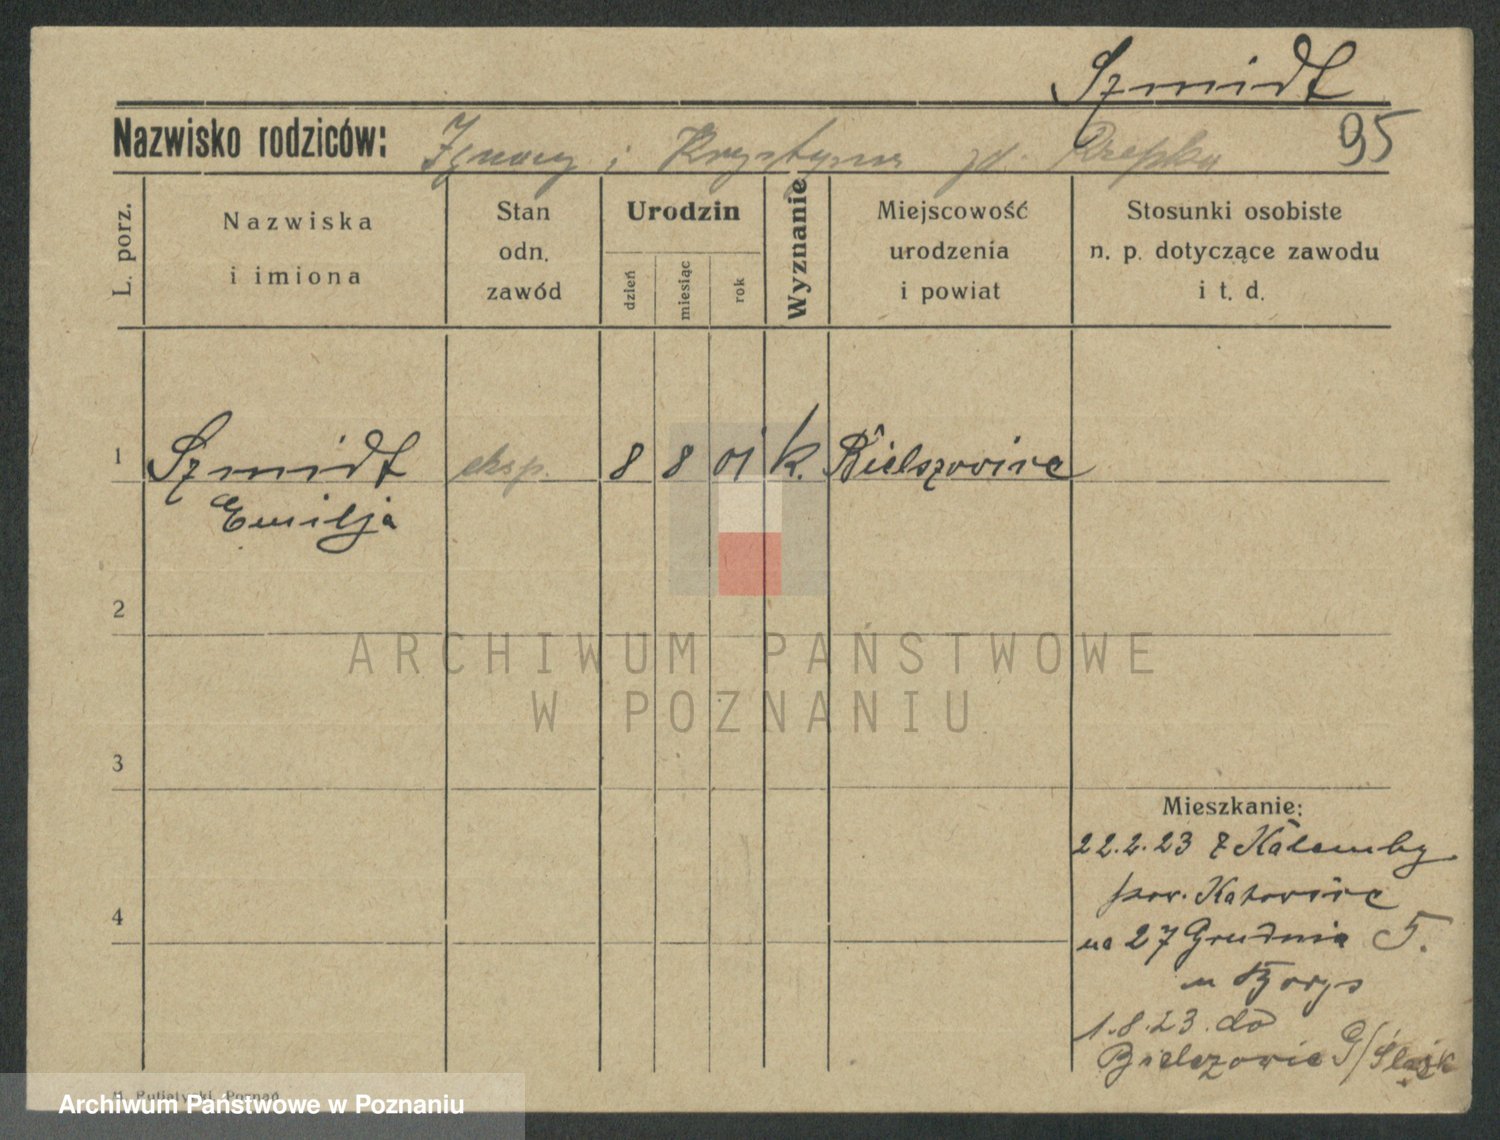 Szmidt
95
Nazwisko rodziców: Ignacy i Krystyna zd. Rzepka
L. porz.
Nazwiska
i imiona
Stan
odn.
zawód
Urodzin
dzień
miesiąc
rok
Wyznanie
Miejscowość
urodzenia
i powiat
Stosunki osobiste
n. p. dotyczące zawodu
i t. d.
1 Szmidt eksp. 8 8 01 k. Bielszowice
Emilja
2
ARCHIWUM PAŃSTWOWE
W POZNANIU
3
Mieszkanie:
22.2.23 z Kalemby
pow. Katowice
4
na 27 Grudnia 5.
u Borys
1.8.23. do
Bielszowic G/Śląsk
Poznań
Archiwum Państwowe w Poznaniu